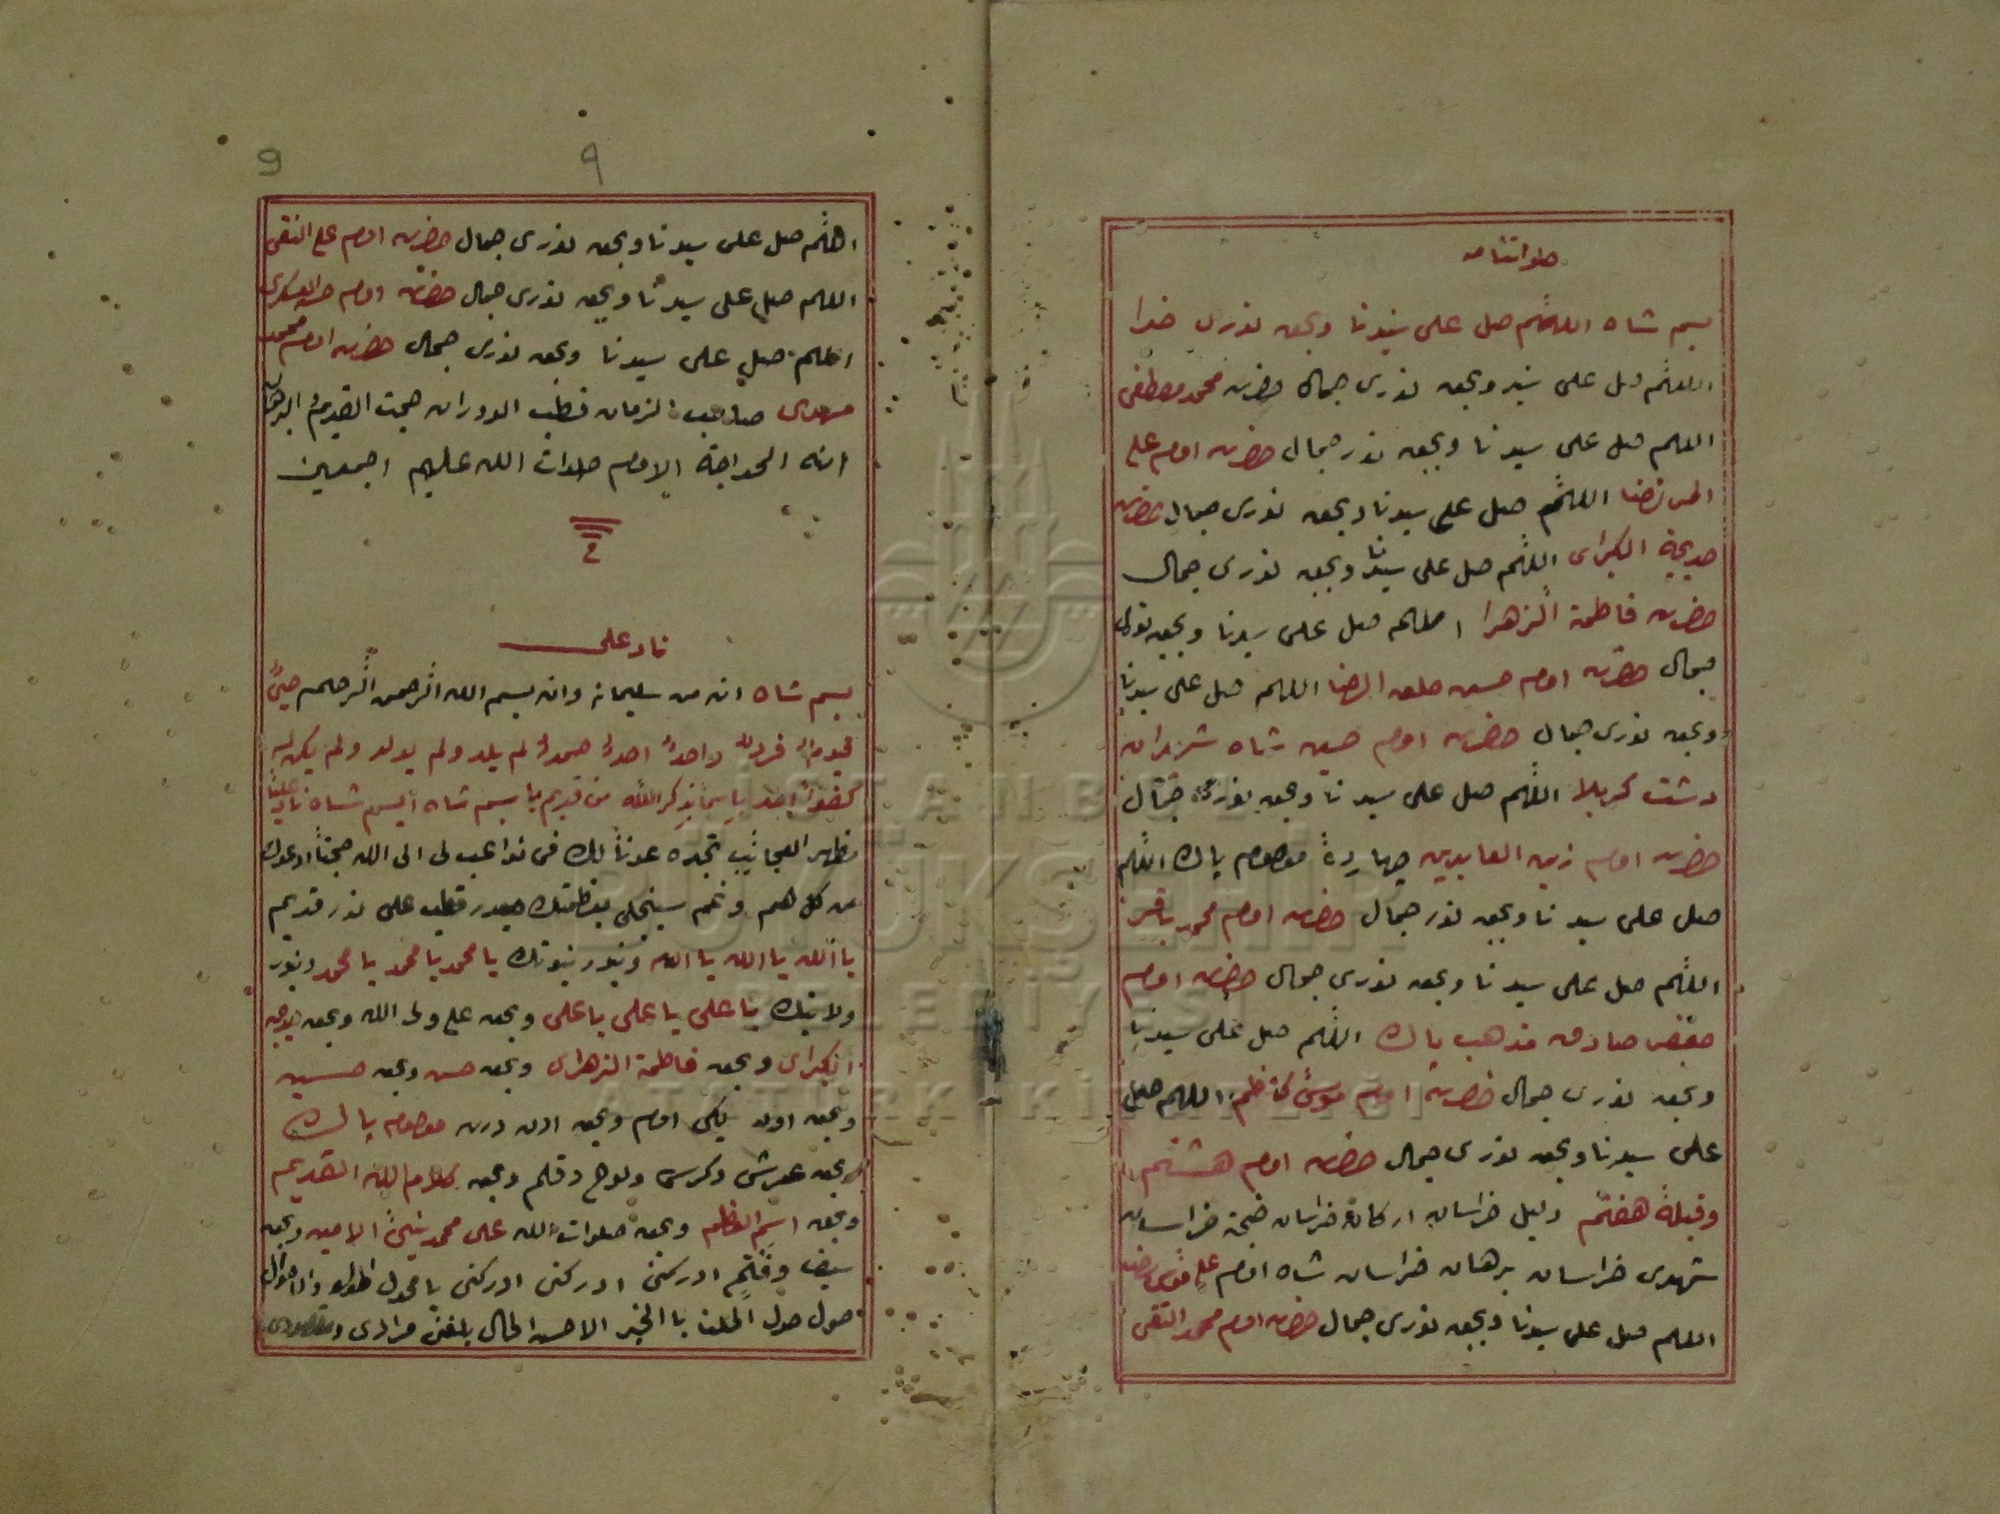 صلواتنامه
بسم شاه اللهم صل على سيدنا وبحق نورى خدا
اللهم صل على سيد وبحق نورى جمال حضرت محمد مصطفى
اللهم صل على سيدنا وبحق نور جمال حضرت امام على
المرتضا اللهم صل على سيدنا وبحق نورى جمال حضرت
خديجة الكبراى اللهم صل على سيدنا وبحق نورى جمال
حضرت فاطمة الزهرا اللهم صل على سيدنا وبحق نورى
جمال حضرت امام حسن خلق الرضا اللهم صل على سيدنا
وبحق نورى جمال حضرت امام حسين شاه شهيدان
دشت كربلا اللهم صل على سيدنا وبحق نورى جمال
حضرت امام زين العابدين چهاردة معصوم پاك اللهم
صل على سيدنا وبحق نور جمال حضرت امام محمد باقر
اللهم صل على سيدنا وبحق نورى جمال حضرت امام
جعفر صادق مذهب پاك اللهم صل على سيدنا
وبحق نورى جمال حضرت امام موسى كاظم اللهم صل
على سيدنا وبحق نورى جمال حضرت امام هشتم
وقبلهٔ هفتم دليل خراسان اركان خراسان خراسان
شهدى خراسان برهان خراسان شاه امام على موسى رضا
اللهم صل على سيدنا وبحق نورى جمال حضرت امام محمد التقى
9 ٩
اللهم صل على سيدنا وبحق نورى جمال حضرت امام على النقى
اللهم صل على سيدنا وبحق نورى جمال حضرت امام حسن العسكرى
اللهم صل على سيدنا وبحق نورى جمال حضرت امام محمد
مهدى صاحب الزمان قطب الدوران حجت القديم البرهان
الامام صلوات الله عليهم اجمعين
ناد على
بسم شاه انه من سليمان وانه بسم الله الرحمن الرحيم حياً
قيوماً فرداً واحداً احداً صمداً لم يلد ولم يولد ولم يكن له
كفواً احد شاه بسم شاه ناد علياً
مظهر العجائب تجده عوناً لك فى نوائب لى الى الله
من كل هم وغم سينجلى بعظمتك على نور قديم
يا الله يا الله يا الله وبنور نبوتك يا محمد يا محمد يا محمد وبنور
ولايتك يا على يا على يا على وبحق على ولى الله وبحق خديجة
الكبراى وبحق فاطمة الزهراى وبحق حسن وبحق حسين
وبحق اون ايكى امام وبحق اون درت معصوم پاك
وبحق عرش وكرسى ولوح وقلم وبحق كلام الله القديم
وبحق اسم العظم وبحق صلوات الله على محمد الامين وبحق
ادركنى ادركنى ادركنى يا محول
حول الحال مرادى
İSTANBUL
BÜYÜKŞEHİR
BELEDİYESİ
ATATÜRK KİTAPLIĞI